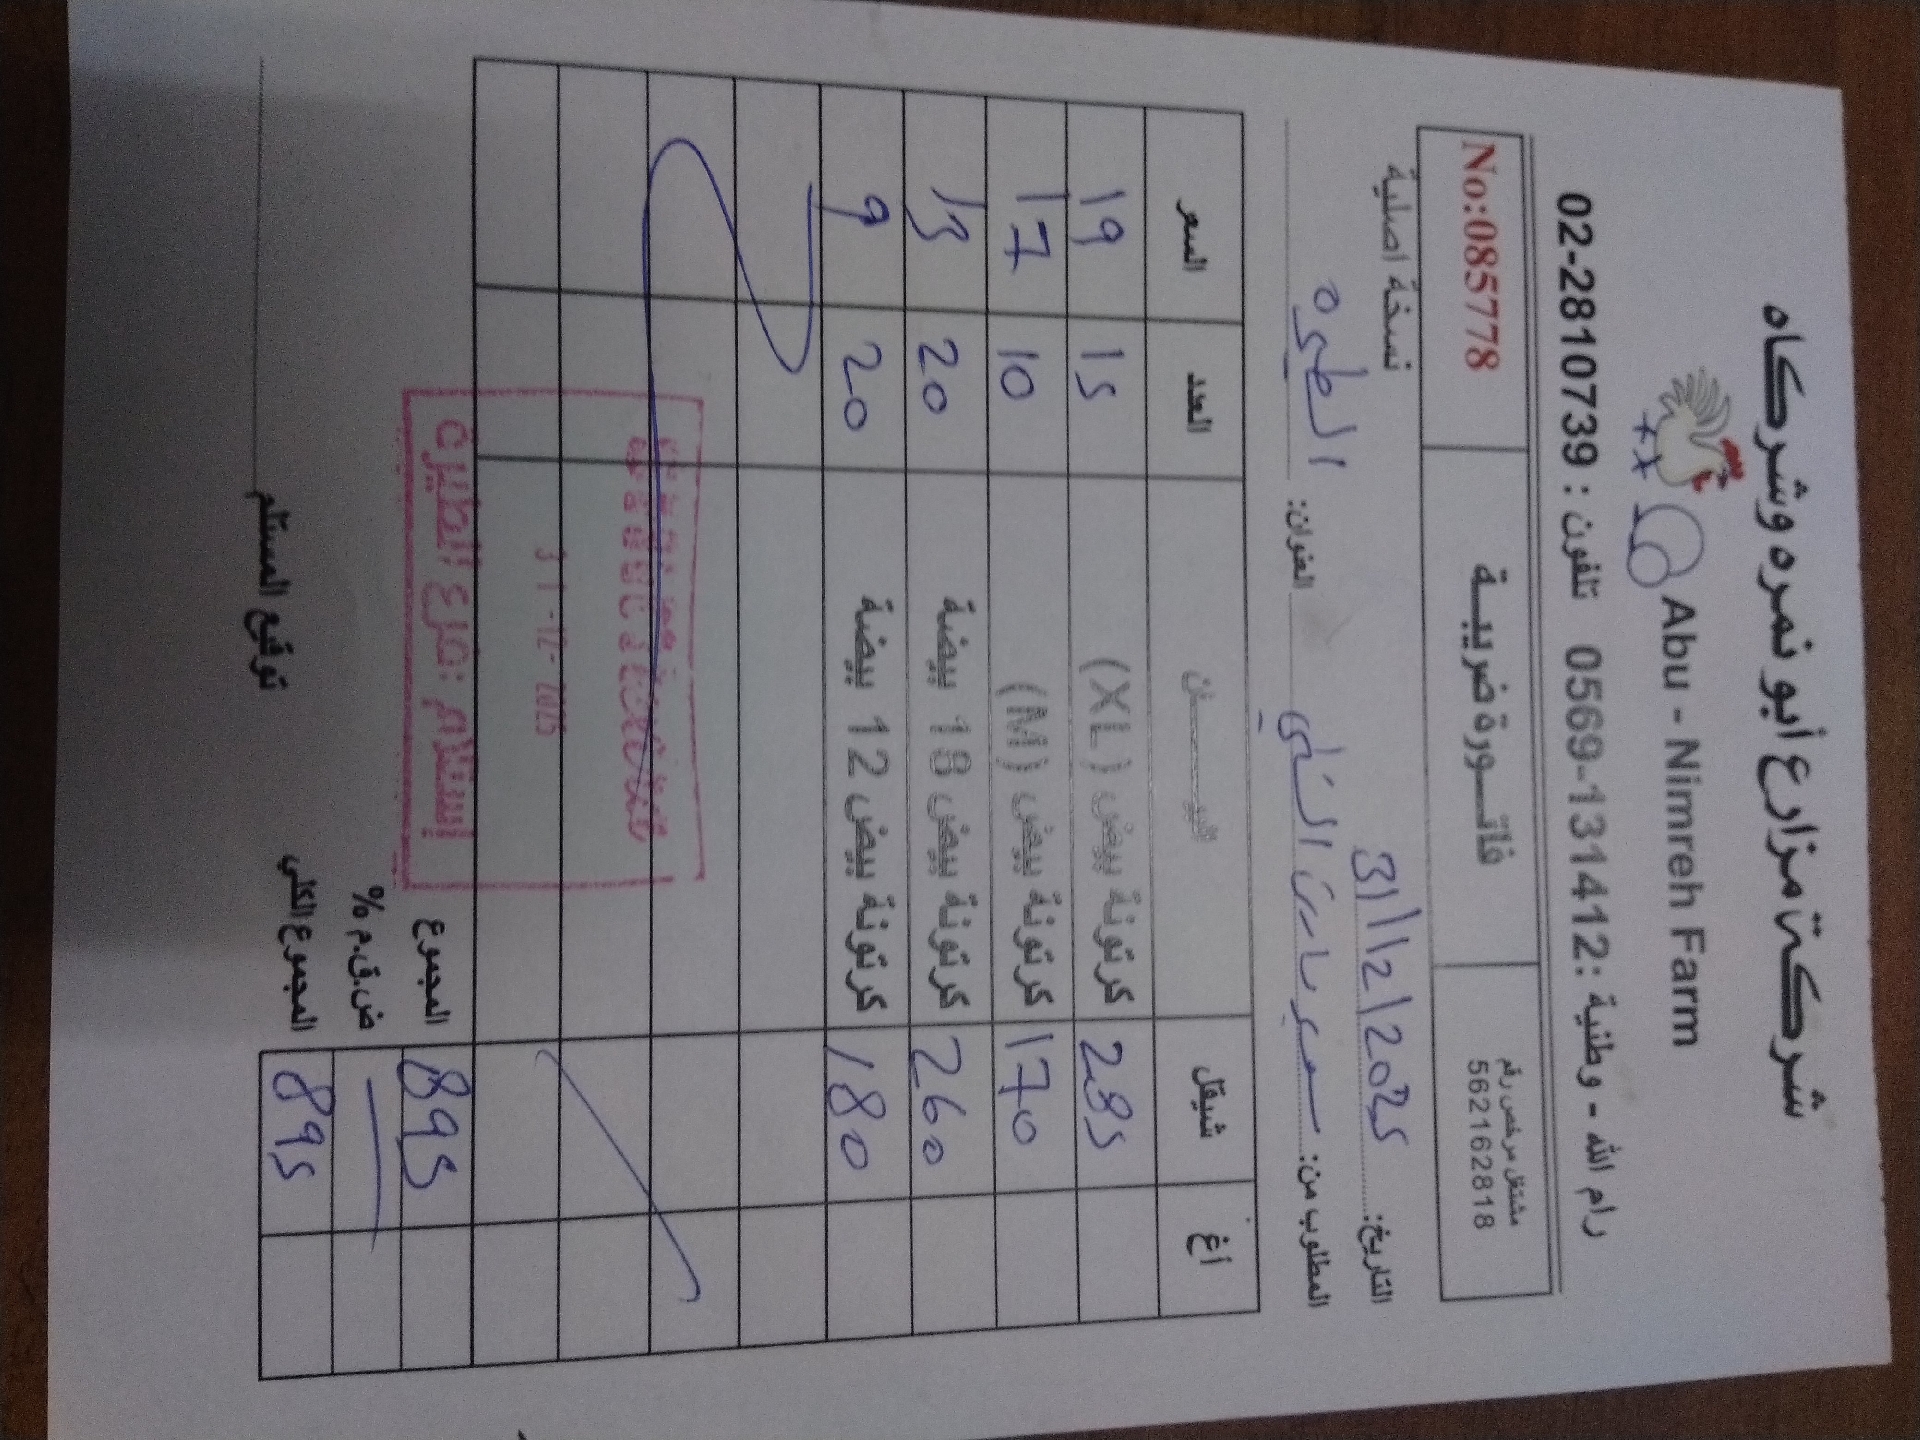 شركة مزارع أبو نمره وشركاه
Abu - Nimreh Farm
رام الله - وطنية :0569-131412 تلفون : 02-2810739
مشتغل مرخص رقم
562162818
فاتـــورة ضريبـــة
No:085778
التاريخ: 31/12/2025
نسخة اصلية
المطلوب من: سوبر ماركت العنوان: الطيره
أغ شيقل البيــــــان العدد السعر
285 كرتونة بيض (XL) 15 19
170 كرتونة بيض (M) 10 17
260 كرتونة بيض 18 بيضة 20 13
180 كرتونة بيض 12 بيضة 20 9
31-12-2025
إستلام فرع الطيرة
المجموع 895
ض.ق.م %
المجموع الكلي 895
توقيع المستلم